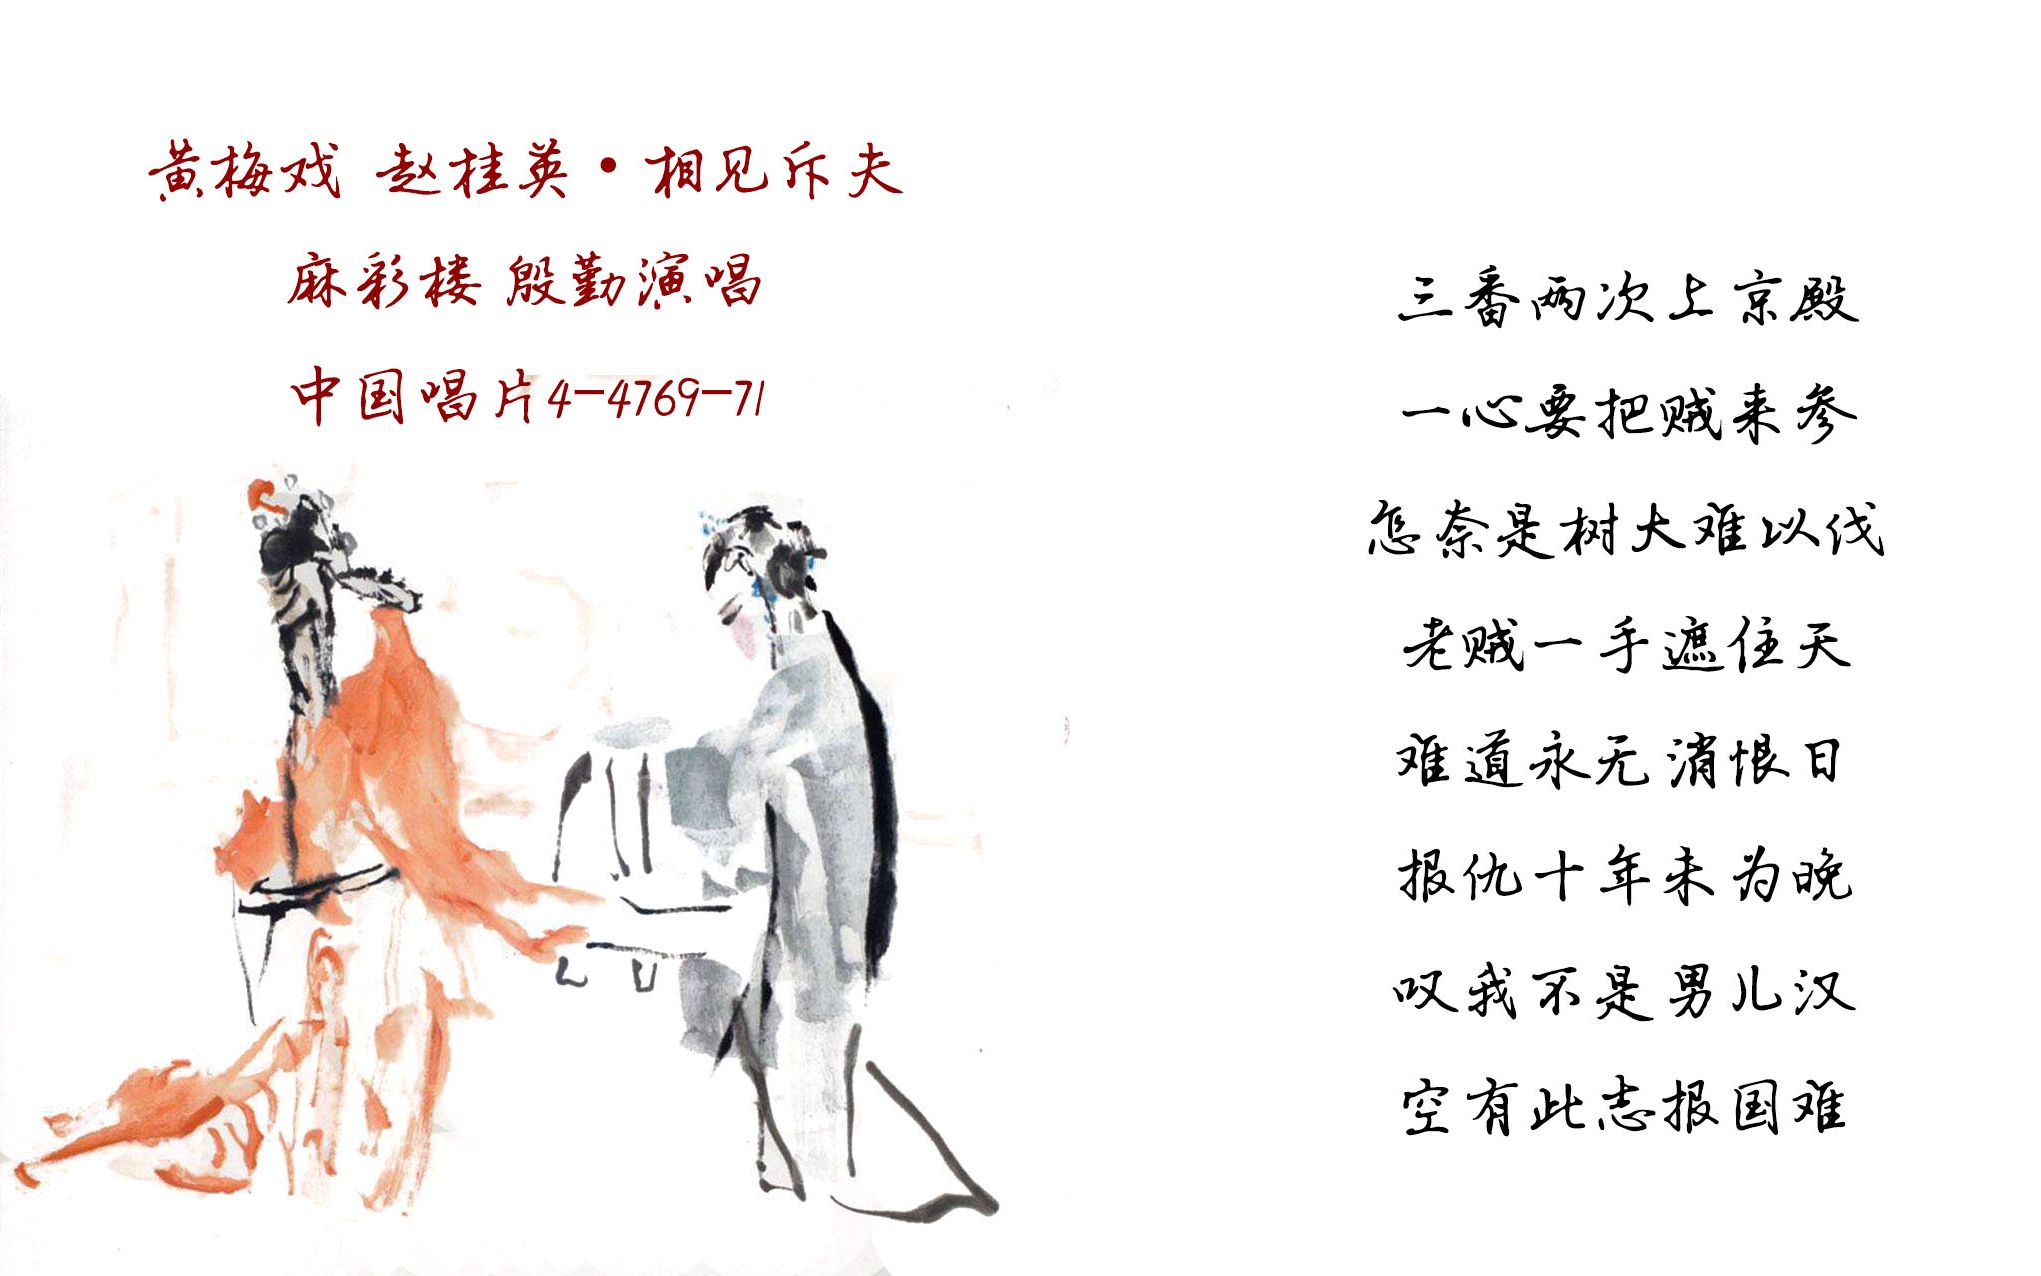 黄梅戏 赵桂英•相见斥夫
麻彩楼 殷勤演唱
中国唱片4-4769-71
三番两次上京殿
一心要把贼来参
怎奈是树大难以伐
老贼一手遮住天
难道永无消恨日
报仇十年未为晚
叹我不是男儿汉
空有此志报国难